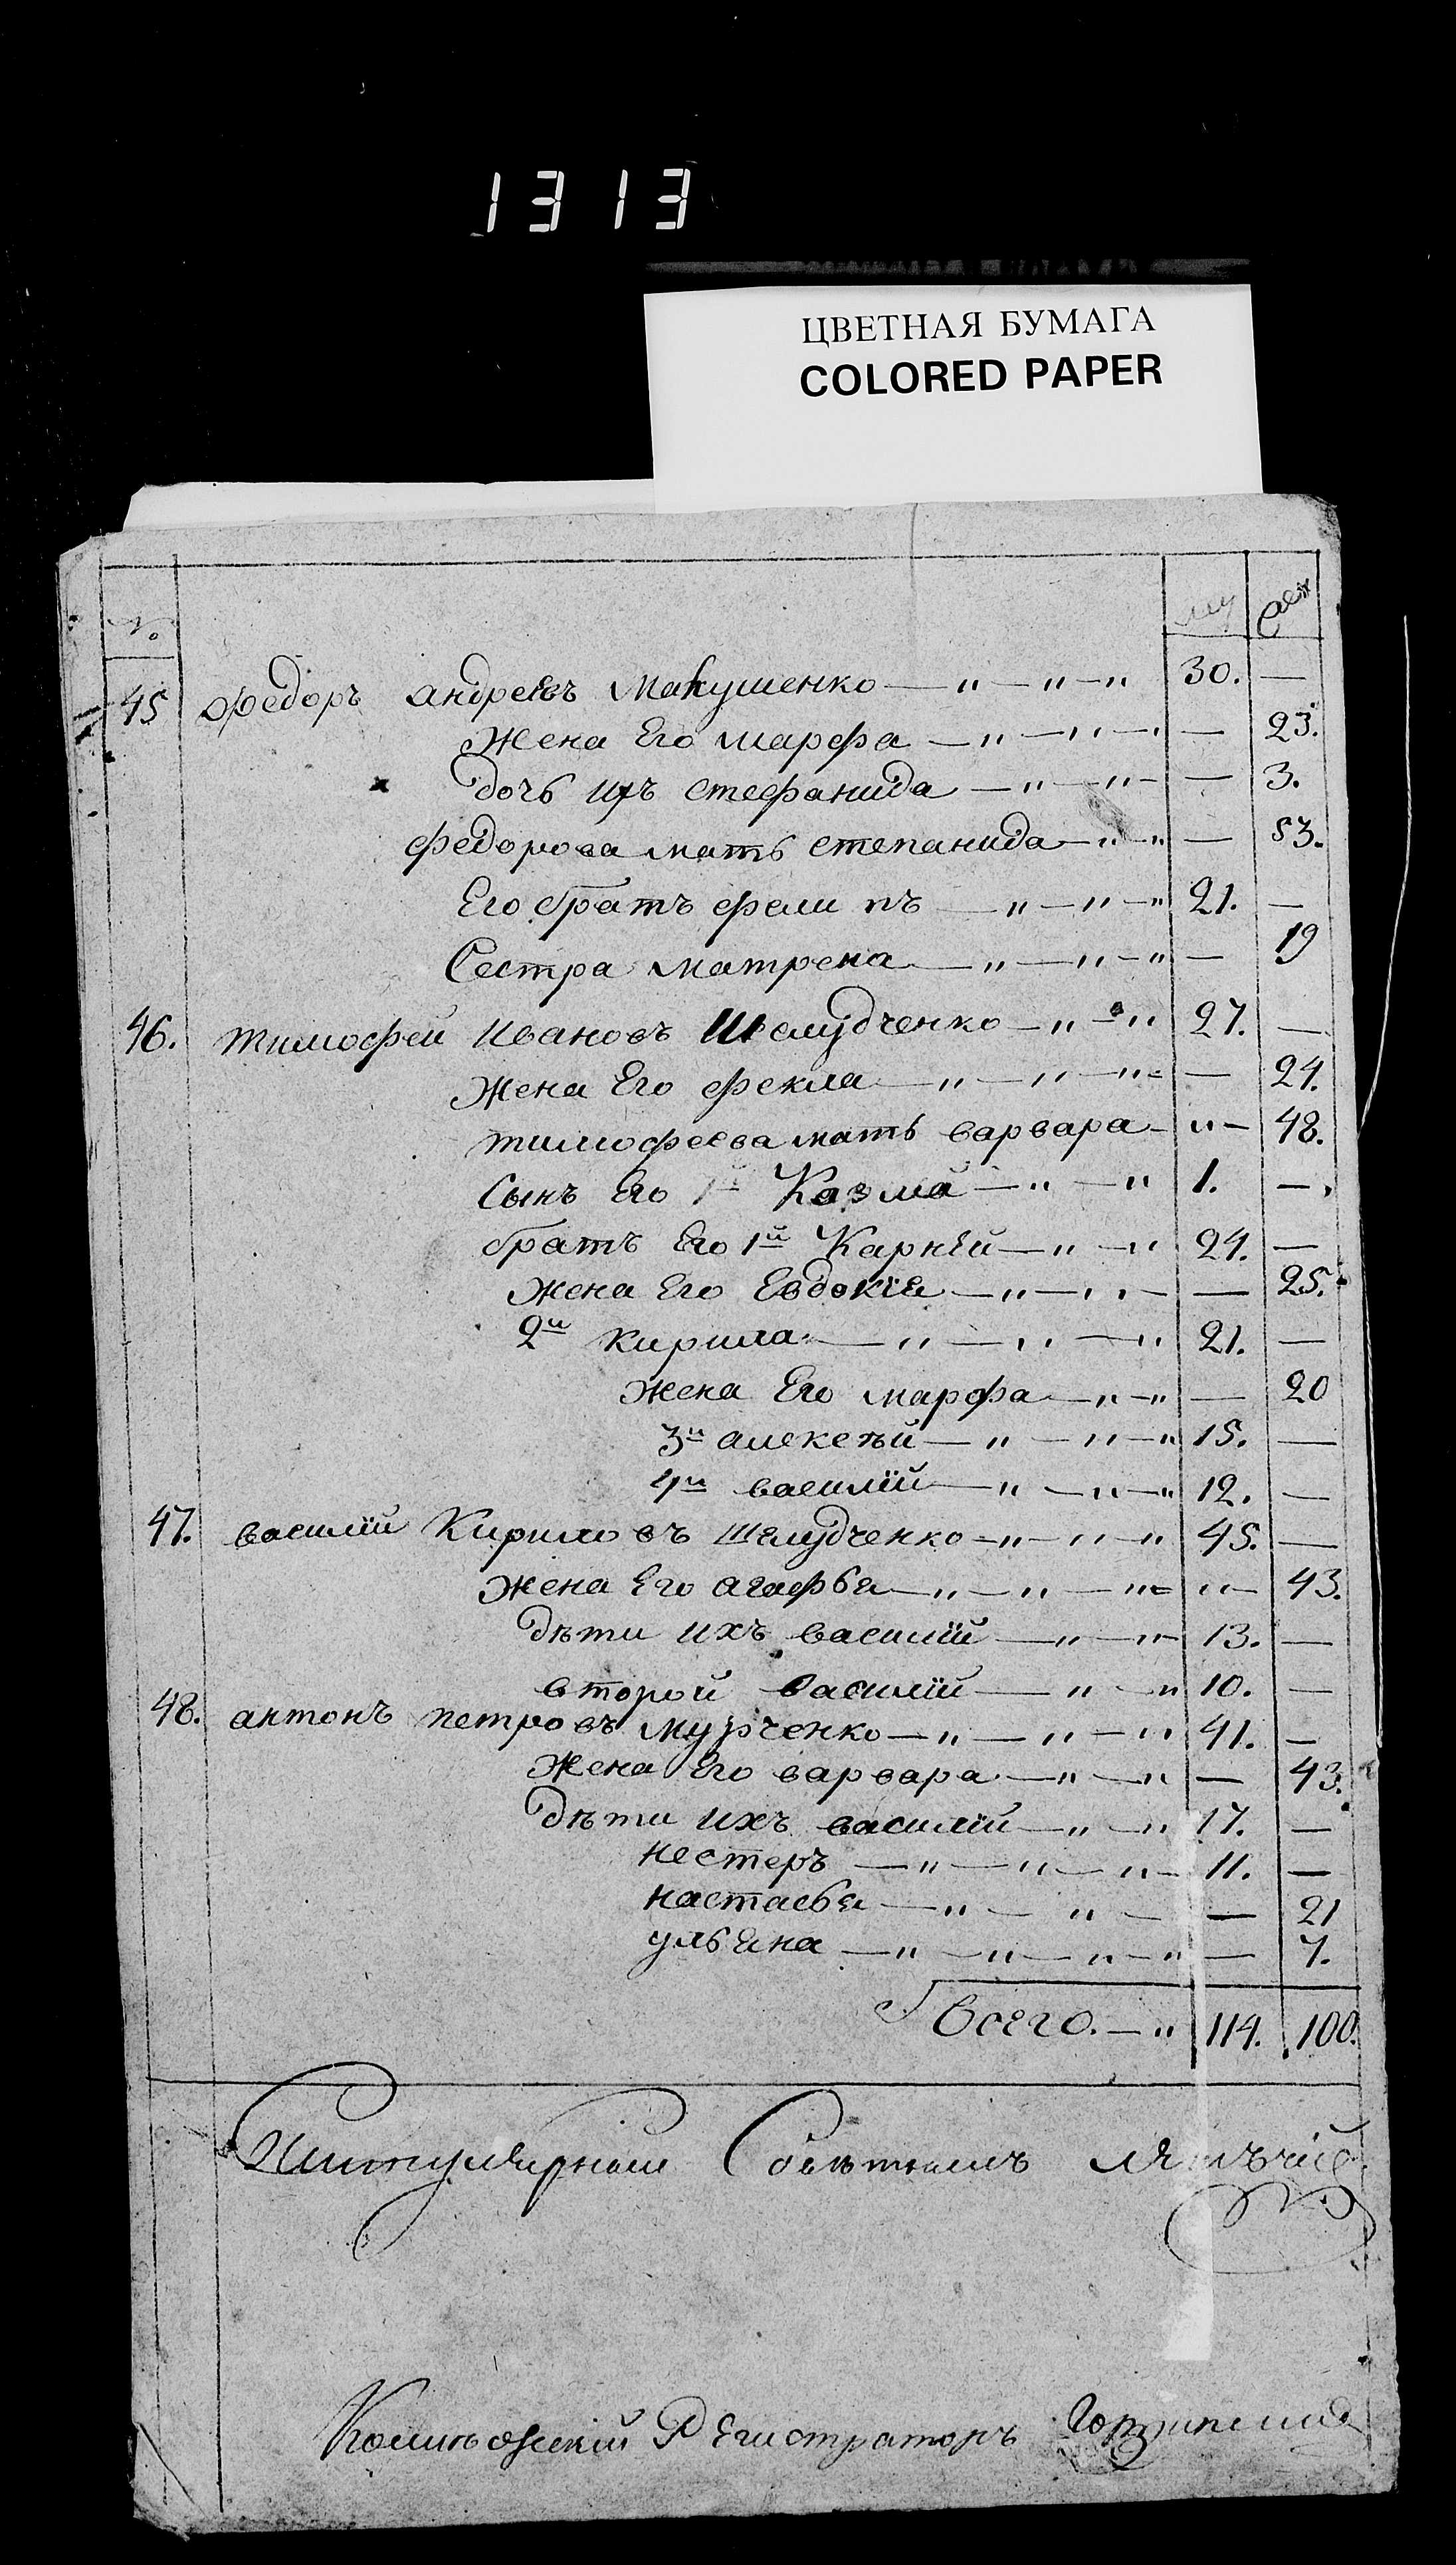 1313
ЦВЕТНАЯ БУМАГА
COLORED PAPER
№ му жен
45 Федоръ андреевъ Макушенко — " — " — " 30. —
Жена Его марфа — " — " — 23.
дочь ихъ стефанида — " — " — — 3.
федорова мать степанида — " — " — 53.
Его братъ фели пъ — " — " — " 21. —
Сестра матрена — " — " — " — 19
46. тимофей Ивановъ Шелудченко — " — " 27. —
Жена Его фекла — " — " — " — — 24.
тимофеева мать варвара — " — 48.
Сынъ Его 1й Козма — " — " 1. —
братъ Его 1й Карнѣй — " — " 24. —
Жена Его Евдокія — " — " — — 25.
2й Кирила — " — " — " 21. —
жена Его марфа — " — " — 20
3й алексѣй — " — " — " 15. —
4й василій — " — " — " 12. —
47. василій Кириловъ Шелудченко — " — " — " 45. —
Жена Его агафья — " — " — " — " — 43.
дѣти ихъ василій — " — " — 13. —
второй василій — " — " 10. —
48. антонъ петровъ мурченко — " — " — " 41. —
Жена Его варвара — " — " — 43.
Дѣти ихъ василій — " — " 17. —
нестеръ — " — " — " — 11. —
настасья — " — " — — 21
ульяна — " — " — " — " — 7.
Всего. — " 114. 100.
Титулярный Совѣтникъ
Колежскій Регистраторъ